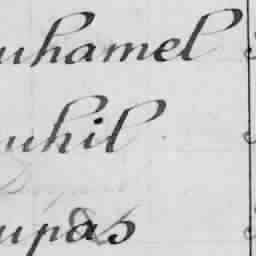 uhamel
uhil
upas